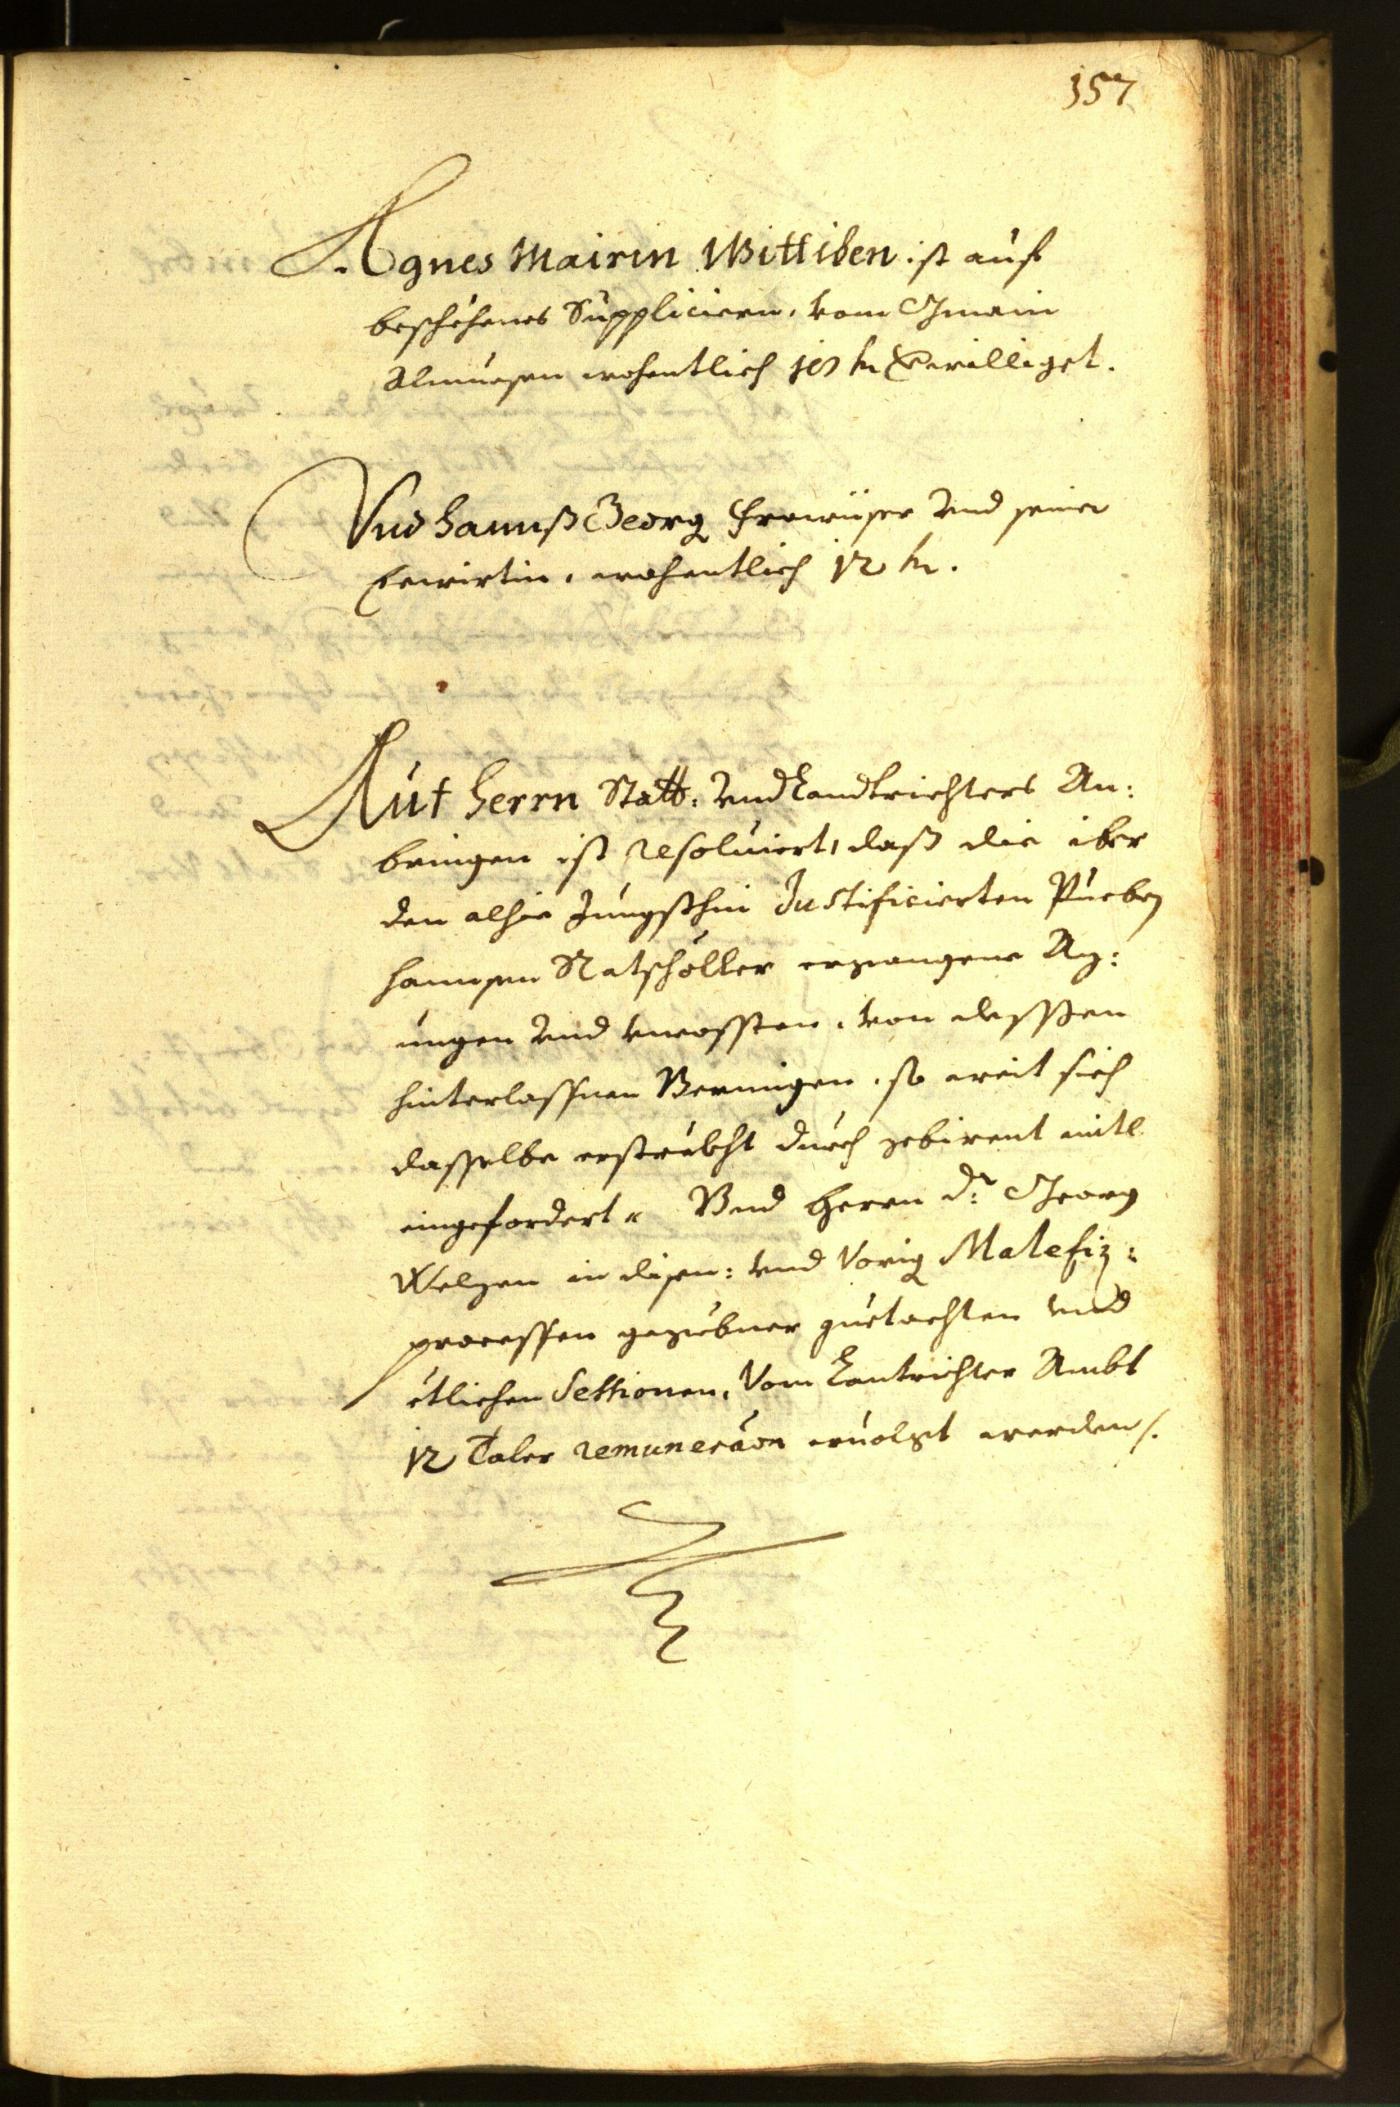 157
Agnes Mairin Wittiben ist auf
beschehenes Suppliciern, vom Gmain
Almuesen wohentlich 10 kr bewilliget.
Und Hannß Georg Frewiser und seiner
Ewirtin, wohentlich 12 kr.
Auf Herrn Statt: und Landtrichters An:
bringen ist resoluiert, daß die iber
den alhie Jungsthin Justificierten Pueben
Hannsen Natscholler ergangene Az:
ungen und uncossten, von dessen
hinterlassnen Vermigen, so weit sich
dasselbe erströkht durch gebirent mitl
eingefordert. Und Herrn Dr. Georg
Welzen in disen: und Vorig Malefiz:
processen gegebner guetachten und
etlichen Sessionen, Vom Lantrichter Ambt
12 Taler remuneraon eruolgt werden.